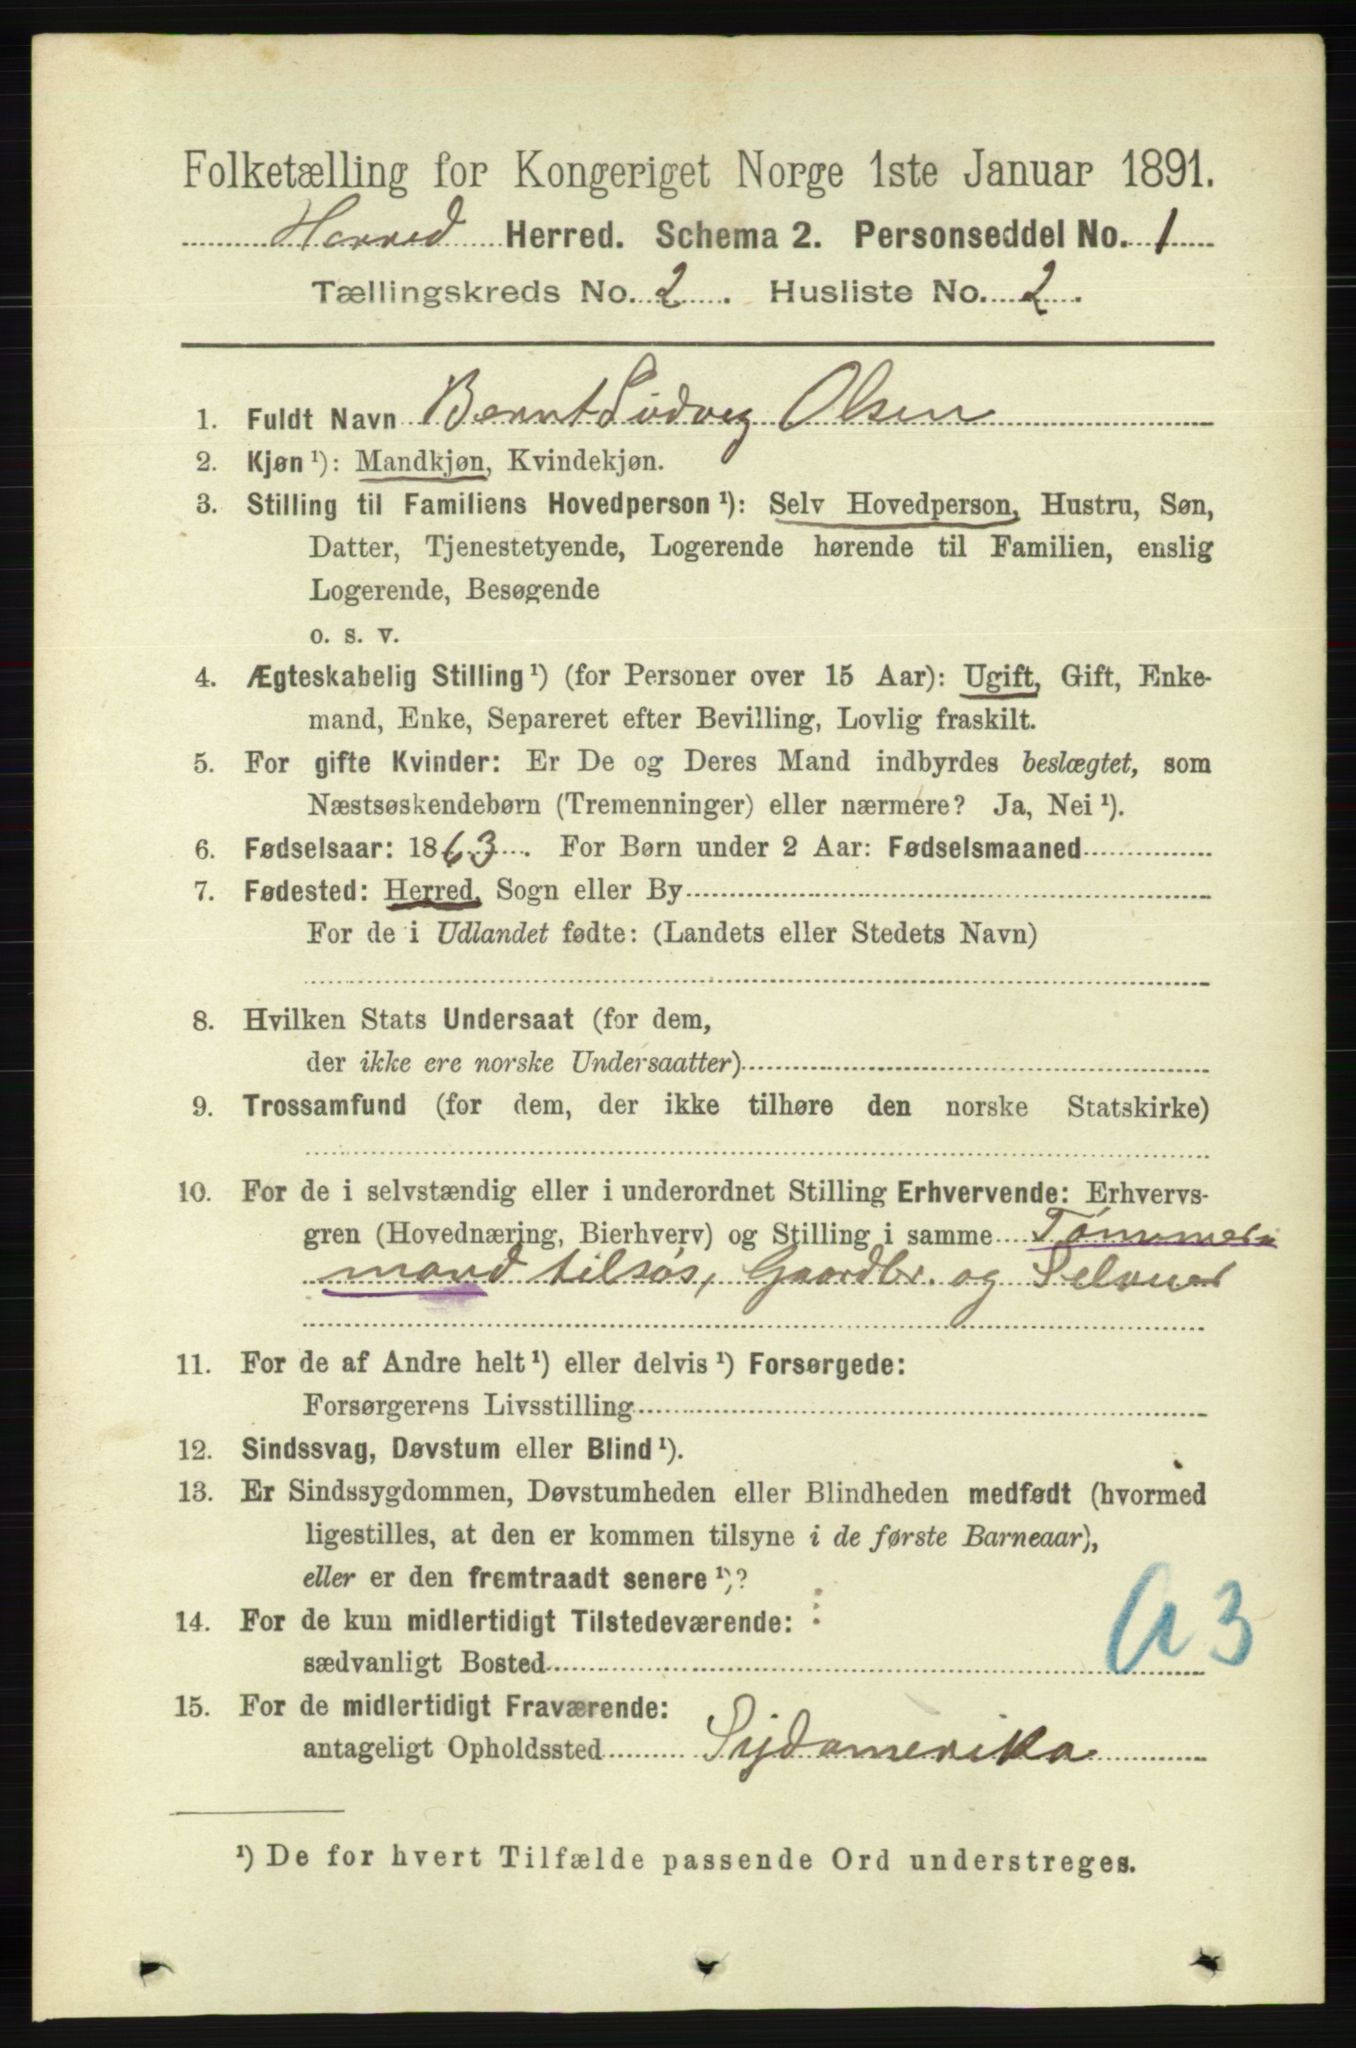 Folketælling for Kongeriget Norge 1ste Januar 1891.
Herred. Schema 2. Personseddel No. 1
Tællingskreds No. 2. Husliste No. 2.
1. Fuldt Navn Bernt Ludvig Olsen
2. Kjøn ¹): Mandkjøn, Kvindekjøn.
3. Stilling til Familiens Hovedperson ¹): Selv Hovedperson, Hustru, Søn,
Datter, Tjenestetyende, Logerende hørende til Familien, enslig
Logerende, Besøgende
o. s. v.
4. Ægteskabelig Stilling ¹) (for Personer over 15 Aar): Ugift, Gift, Enke-
mand, Enke, Separeret efter Bevilling, Lovlig fraskilt.
5. For gifte Kvinder: Er De og Deres Mand indbyrdes beslægtet, som
Næstsøskendebørn (Tremenninger) eller nærmere? Ja, Nei ¹).
6. Fødselsaar: 1863. For Børn under 2 Aar: Fødselsmaaned
7. Fødested: Herred, Sogn eller By
For de i Udlandet fødte: (Landets eller Stedets Navn)
8. Hvilken Stats Undersaat (for dem,
der ikke ere norske Undersaatter)
9. Trossamfund (for dem, der ikke tilhøre den norske Statskirke)
10. For de i selvstændig eller i underordnet Stilling Erhvervende: Erhvervs-
gren (Hovednæring, Bierhverv) og Stilling i samme Tømmer-
mand tilsøs, Gaardbr. og Selveier
11. For de af Andre helt ¹) eller delvis ¹) Forsørgede:
Forsørgerens Livsstilling
12. Sindssvag, Døvstum eller Blind ¹).
13. Er Sindssygdommen, Døvstumheden eller Blindheden medfødt (hvormed
ligestilles, at den er kommen tilsyne i de første Barneaar),
eller er den fremtraadt senere ¹)?
14. For de kun midlertidigt Tilstedeværende:
sædvanligt Bosted
15. For de midlertidigt Fraværende:
antageligt Opholdssted Sydamerika
¹) De for hvert Tilfælde passende Ord understreges.